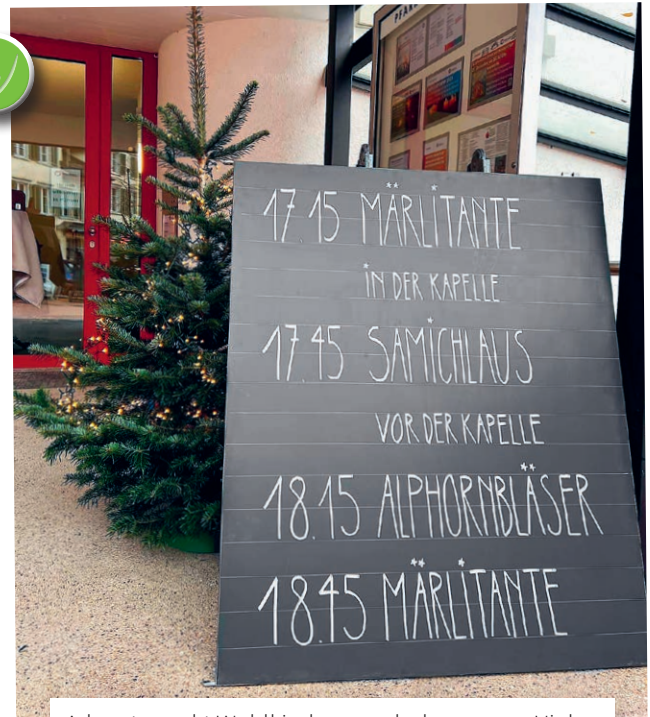 17.15 MÄRLITANTE
IN DER KAPELLE
17.45 SAMICHLAUS
VOR DER KAPELLE
18.15 ALPHORNBLÄSER
18.45 MÄRLITANTE